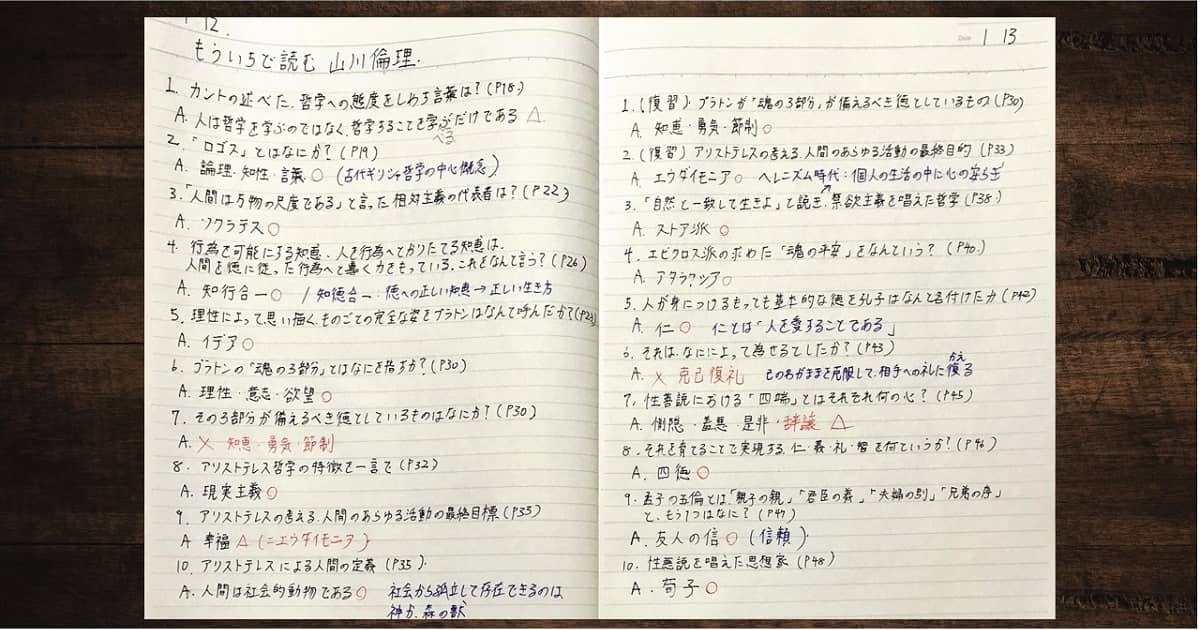 1 12.
もういちど読む 山川倫理.
1. カントの述べた、哲学への態度をしめす言葉は?(P18.)
A. 人は哲学を学ぶのではなく、哲学することを学ぶだけである △
べる
2.「ロゴス」とはなにか?(P19)
A. 論理・知性・言葉 ○ (古代ギリシャ哲学の中心概念)
3.「人間は万物の尺度である」と言った相対主義の代表者は?(P22)
A. ソクラテス ○
4. 行為を可能にする知恵、人を行為へとかりたてる知恵は、
人間を徳に従った行為へと導く力をもっている。これをなんて言う?(P26)
A. 知行合一 ○ / 知徳合一:徳への正しい知恵→正しい生き方
5. 理性によって、思い描く、ものごとの完全な姿をプラトンはなんて呼んだか?(P28)
A. イデア ○
6. プラトンの「魂の3部分」とはなにを指すか?(P30)
A. 理性・意志・欲望 ○
7. その3部分が備えるべき徳としているものはなにか?(P30)
A. × 知恵・勇気・節制
8. アリストテレス哲学の特徴を一言で(P32)
A. 現実主義 ○
9. アリストテレスの考える、人間のあらゆる活動の最終目標(P33)
A 幸福 △ (=エウダイモニア)
10. アリストテレスによる人間の定義(P35).
A. 人間は社会的動物である ○ 社会から孤立して存在できるのは
神か、森の獣
Date 1 13
1.(復習)プラトンが「魂の3部分」が備えるべき徳としているもの(P30)
A. 知恵・勇気・節制 ○
2.(復習)アリストテレスの考える、人間のあらゆる活動の最終目的(P33)
A. エウダイモニア ○ ヘレニズム時代:個人の生活の中に心の安らぎ
3.「自然と一致して生きよ」と説き、禁欲主義を唱えた哲学(P38)
A. ストア派 ○
4. エピクロス派の求めた「魂の平安」をなんという?(P40.)
A. アタラクシア ○
5. 人が身につけるもっとも基本的な徳を孔子はなんて名付けたか(P42)
A. 仁 ○ 仁とは「人を愛することである」
6. それは、なにによって為せるとしたか?(P43)
かえ
A. × 克己復礼 己のわがままを克服して、相手への礼に復る
7. 性善説における「四端」とはそれぞれ何の心?(P45)
A. 惻隠・羞悪・是非・辞譲 △
8. それを育てることで実現する、仁・義・礼・智を何というか?(P46)
A. 四徳 ○
9. 孟子の五倫とは「親子の親」「君臣の義」「夫婦の別」「兄弟の序」
と、もう1つはなに?(P47)
A. 友人の信 ○ (信頼)
10. 性悪説を唱えた思想家(P48)
A. 荀子 ○